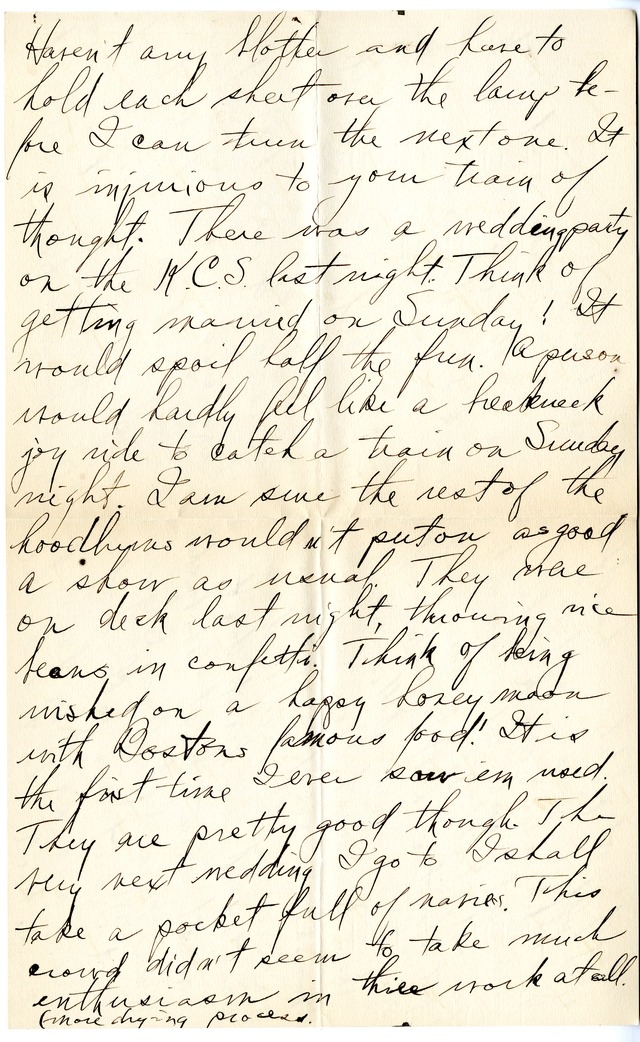 Haven't any blotter and have to
hold each sheet over the lamp be-
fore I can turn the next one. It
is injurious to your train of
thought. There was a wedding party
on the K.C.S. last night. Think of
getting married on Sunday! It
would spoil half the fun. A person
would hardly feel like a breakneck
joy ride to catch a train on Sunday
night. I am sure the rest of the
hoodlums wouldn't put on as good
a show as usual. They were
on deck last night, throwing rice
beans in confetti. Think of being
wished on a happy honey moon
with Bostons famous food! It is
the first time I ever saw em used.
They are pretty good though. The
very next wedding I go to I shall
take a pocket full of navies. This
crowd didn't seem to take much
enthusiasm in thier work at all.
(more drying process.